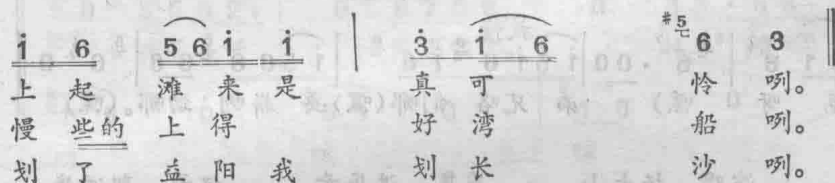 i̇ 6 5 6 i̇ i̇ | 3̇ i̇ 6 #5 6 3 ‖
上 起 滩 来 是 真 可 怜 咧。
慢 些的 上 得 好 湾 船 咧。
划 了 益 阳 我 划 长 沙 咧。